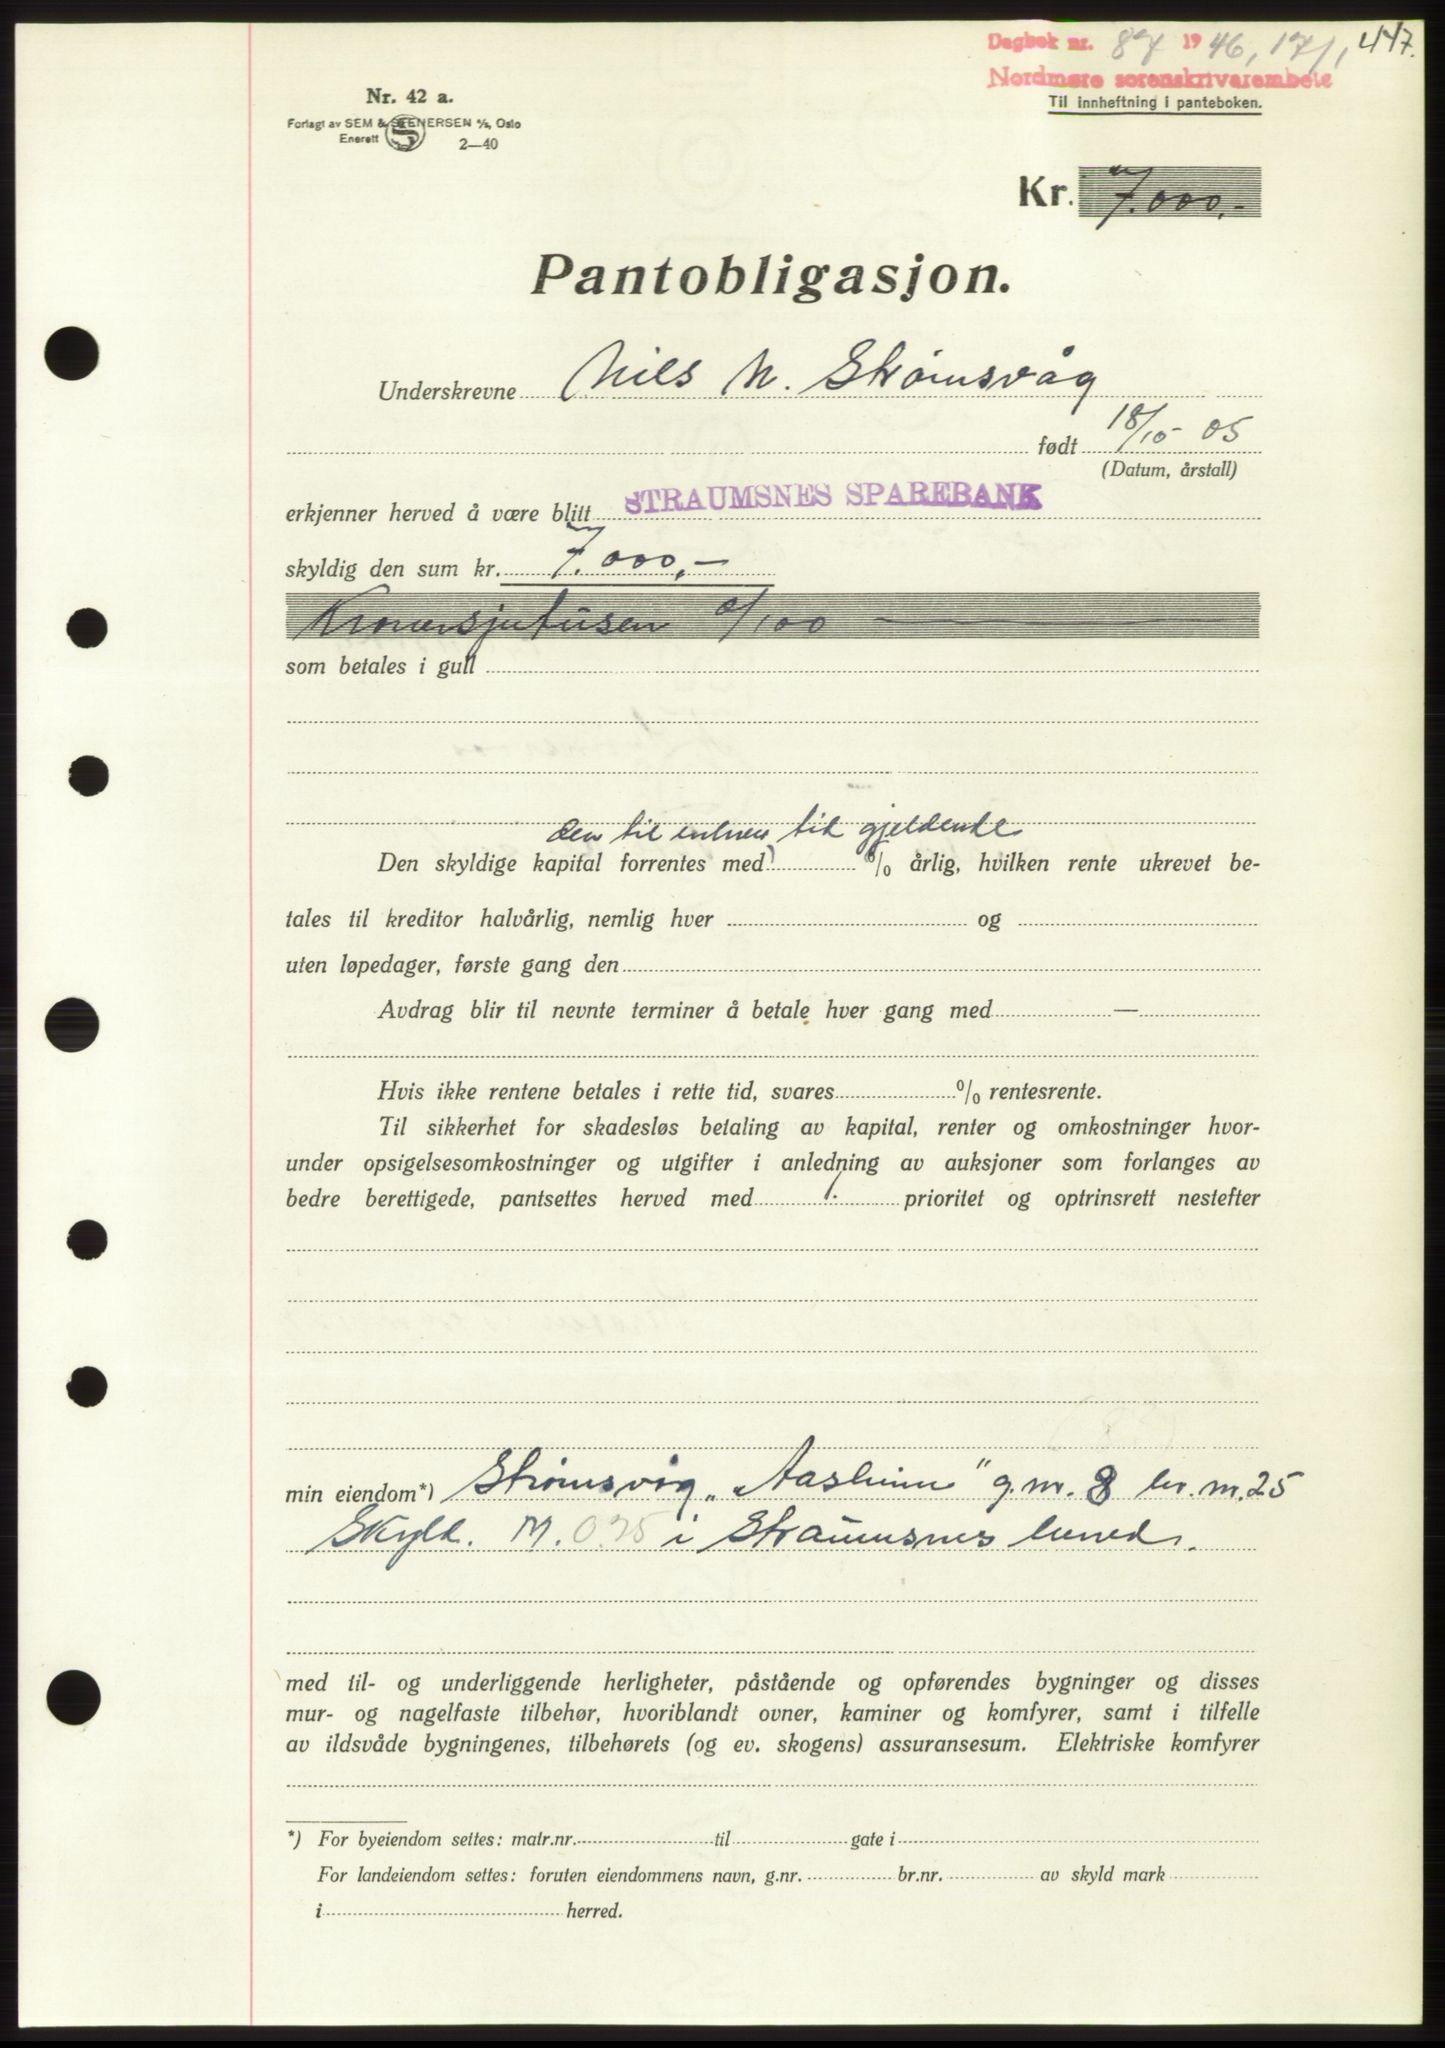 Dagbok nr. 87 1946, 17/1, 447.
Nordmøre sorenskriverembete
Til innheftning i panteboken.
Nr. 42 a.
Forlagt av SEM & STENERSEN A/S, Oslo
Enerett 2—40
Kr. 7.000,-
Pantobligasjon.
Underskrevne Nils N. Strømsvåg
født 18/10-05
(Datum, årstall)
erkjenner herved å være blitt STRAUMSNES SPAREBANK
skyldig den sum kr. 7.000,-
Kronersjutusen 0/100
som betales i gull
den til enhver tid gjeldende
Den skyldige kapital forrentes med % årlig, hvilken rente ukrevet be-
tales til kreditor halvårlig, nemlig hver og
uten løpedager, første gang den
Avdrag blir til nevnte terminer å betale hver gang med —
Hvis ikke rentene betales i rette tid, svares % rentesrente.
Til sikkerhet for skadesløs betaling av kapital, renter og omkostninger hvor-
under opsigelsesomkostninger og utgifter i anledning av auksjoner som forlanges av
bedre berettigede, pantsettes herved med 1. prioritet og optrinsrett nestefter
min eiendom*) Strømsvåg „Aasheim" g.nr. 8 br.nr. 25
Skyld. M. 0.25 i Straumsnes herred.
med til- og underliggende herligheter, påstående og opførendes bygninger og disses
mur- og nagelfaste tilbehør, hvoriblandt ovner, kaminer og komfyrer, samt i tilfelle
av ildsvåde bygningenes, tilbehørets (og ev. skogens) assuransesum. Elektriske komfyrer
*) For byeiendom settes: matr.nr. til gate i
For landeiendom settes: foruten eiendommens navn, g.nr. br.nr. av skyld mark
i herred.